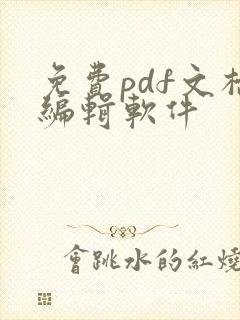 免費pdf文
編輯軟件
會跳水的紅燒